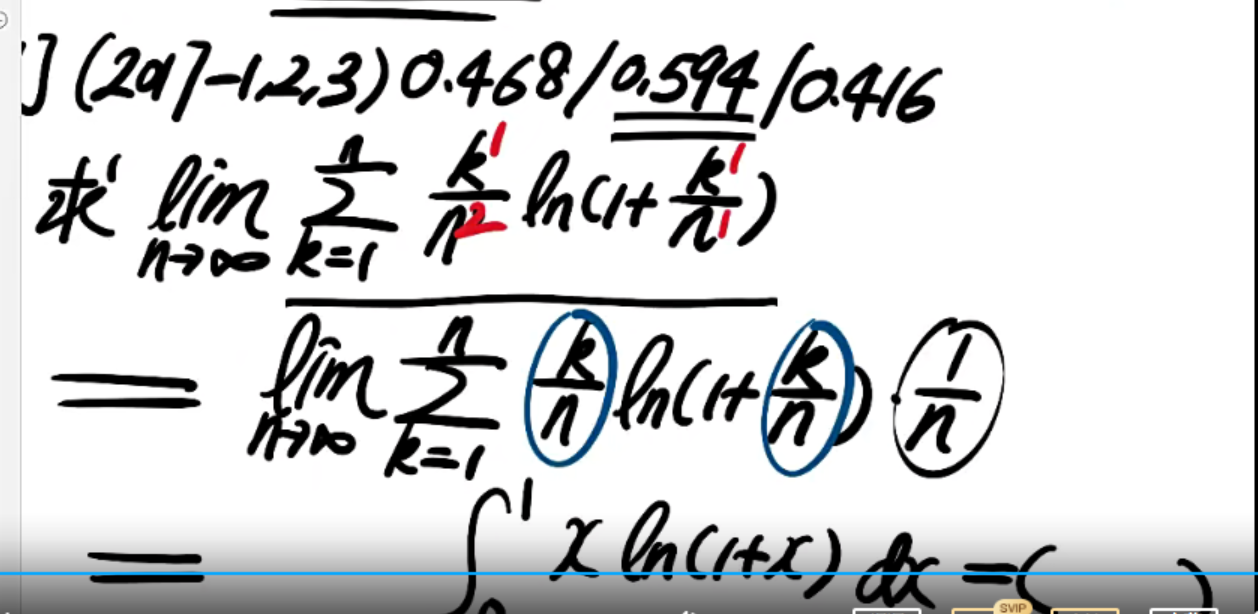 ] (2017-1,2,3) 0.468/0.594/0.416
求 lim n→∞ ∑ k=1 n k¹/n² ln(1+k¹/n¹)
= lim n→∞ ∑ k=1 n k/n ln(1+k/n)·1/n
= ∫₀¹ x ln(1+x) dx = ( )
SVIP